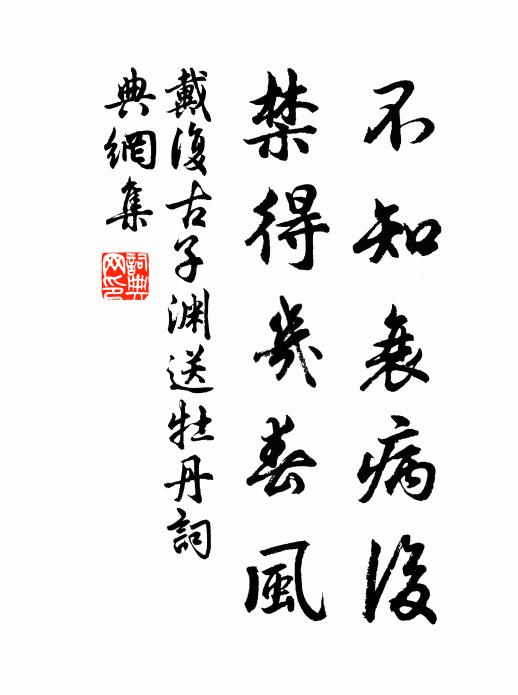 不知衰病後
禁得幾春風
戴復古子淵送牡丹詞
典網集
詞典網印